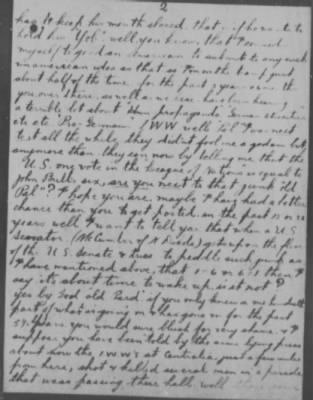 2
has to keep his mouth closed. that, if he were to
hold him "Yah" well you know, that I consider
myself to good an American to submit to any such
unamerican idea as that so I'm on the bum, just
about half of the time for the past 2 years
you over there, as well as we here have been hearing
a terrible lot about "Hun propaganda" German atrocities
etc etc "Pro-German" "IWW" well "Pal" I was next
to it all the while, they didn't fool me a godam bit,
anymore than they can now by telling me that the
U.S. one vote in the League of Nations is equal to
John Bull's six, are you next to that junk "Old
Pal"? I hope you are, maybe I have had a better
chance than you to get posted, in the past
years well I want to tell you that when a U.S.
Senator (McCumber of N. Dakota) gets up on the floor
of the U.S. Senate & tries to peddle such junk as
I have mentioned above, that 1-6 or 6-1 then I
say its about time to wake up, is it not?
Yes by God old "Pard" if you only knew a one hundredth
part of what is going on & has gone on for the past
years you would sure blush for very shame. & I
suppose you have been told by the same lying press
about how the I WW's at Centralia, just a few miles
from here, shot & killed several men in a parade,
that was passing their hall, well